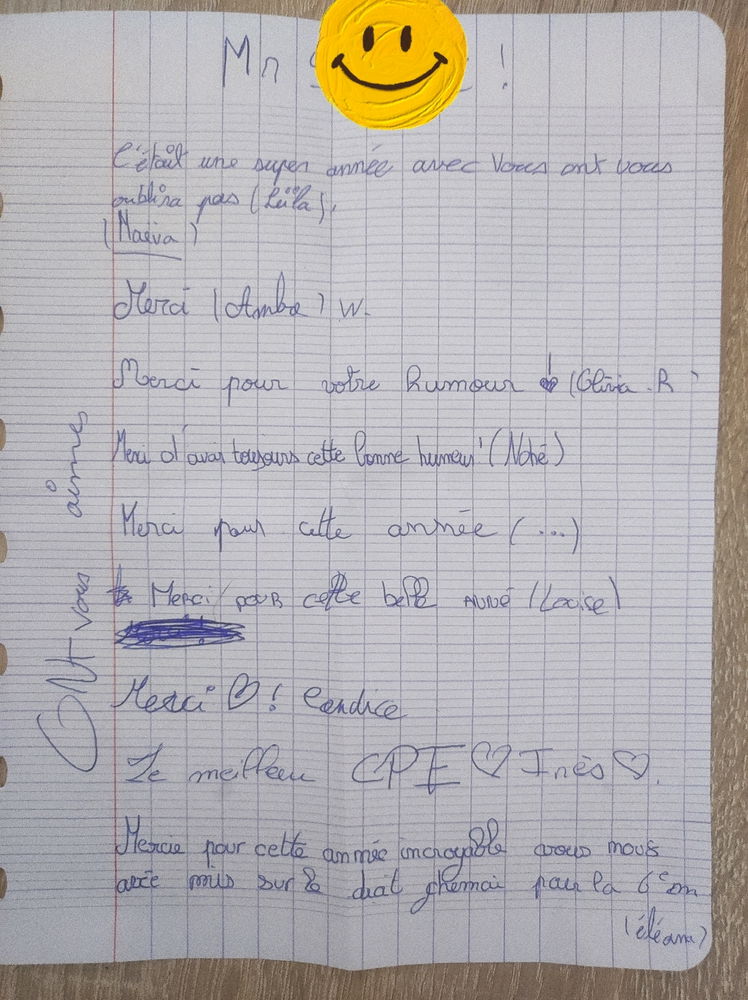 Mr !
C'était une super année avec vous ont vous
oublira pas (Leïla),
(Maéva)
Merci (Ambre) W.
Merci pour votre humour (Olivia.R)
Merci d'avoir toujours cette bonne humeur ! (Nohé)
Merci pour cette année (...)
Merci pour cette belle année (Louise)
Merci ♡ ! Candice
Le meilleur CPE ♡ Inès ♡.
Mercie pour cette année incroyable vous nous
avée mis sur le droit chemai pour la 6e
(éléana)
ONt vous aimes